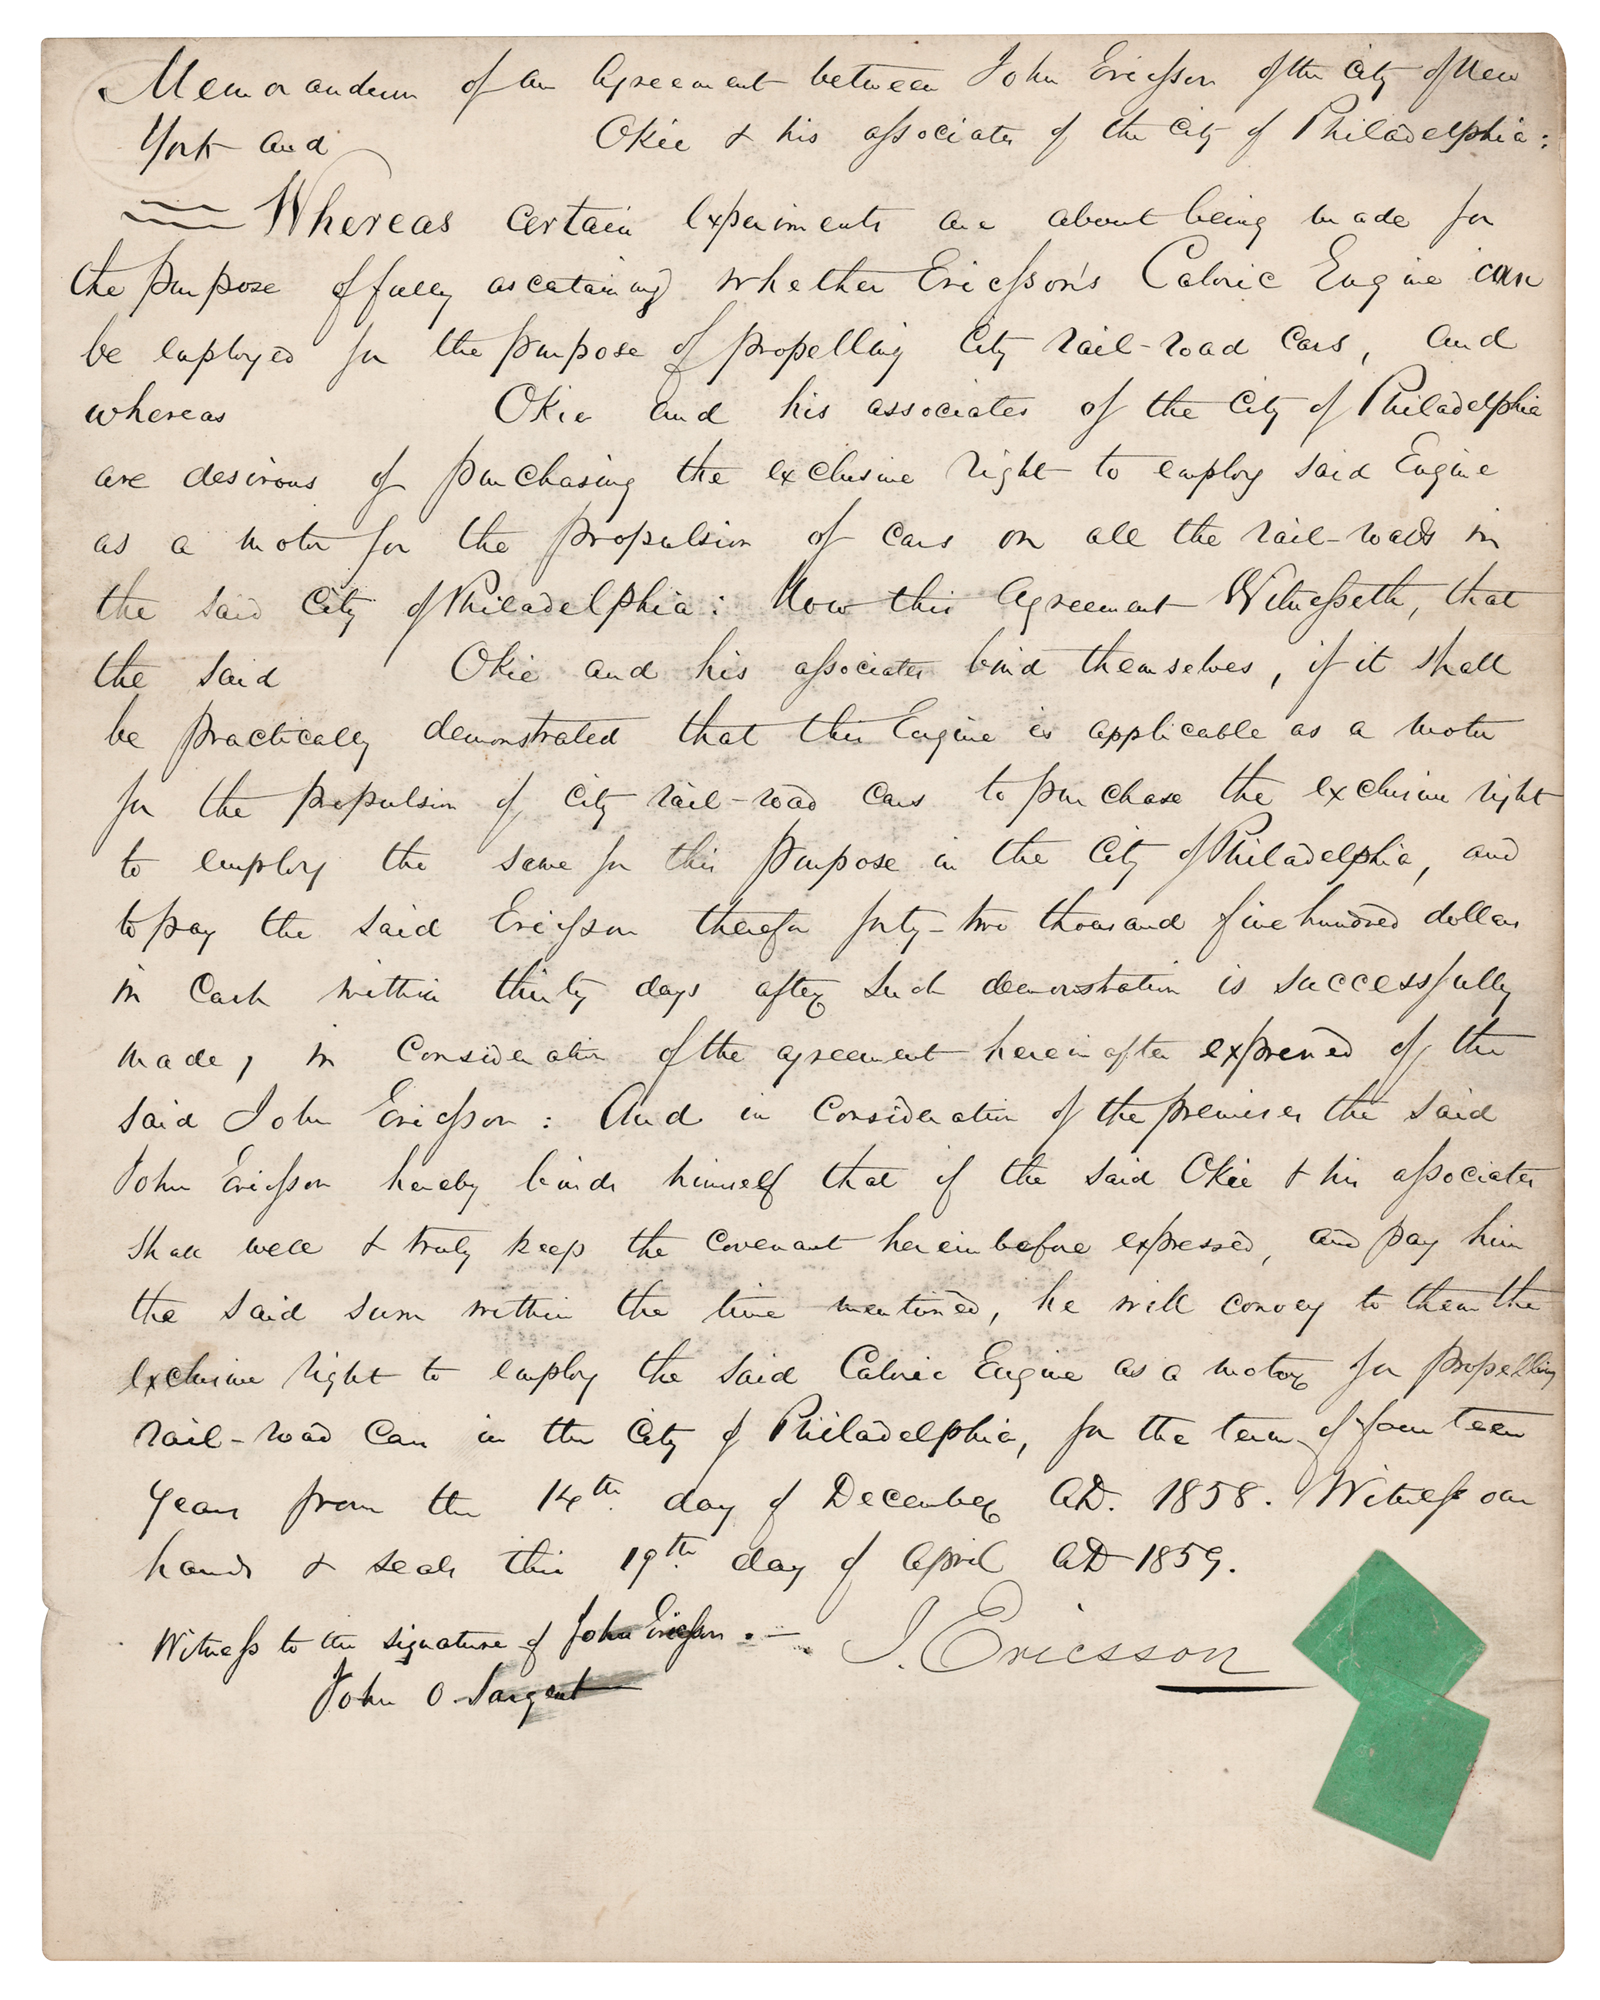 Memorandum of an Agreement between John Ericsson of the City of New
York and Okie & his associates of the City of Philadelphia:
Whereas certain experiments are about being made for
the purpose of fully ascertaining whether Ericsson's Caloric Engine can
be employed for the purpose of propelling City rail-road cars, and
whereas Okie and his associates of the City of Philadelphia
are desirous of purchasing the exclusive right to employ said Engine
as a motor for the propulsion of cars on all the rail-roads in
the said City of Philadelphia: Now this Agreement Witnesseth, that
the said Okie and his associates bind themselves, if it shall
be practically demonstrated that this Engine is applicable as a motor
for the propulsion of City rail-road cars to purchase the exclusive right
to employ the same for this purpose in the City of Philadelphia, and
to pay the said Ericsson therefor forty-two thousand five hundred dollars
in Cash within thirty days after such demonstration is successfully
made, in consideration of the agreement hereinafter expressed of the
said John Ericsson: And in consideration of the premises the said
John Ericsson hereby binds himself that if the said Okie & his associates
shall well & truly keep the covenant hereinbefore expressed, and pay him
the said sum within the time mentioned, he will convey to them the
exclusive right to employ the said Caloric Engine as a motor for propelling
rail-road Cars in the City of Philadelphia, for the term of fourteen
years from the 14th day of December A.D. 1858. Witness our
hands & seals this 19th day of April AD 1859.
Witness to the signature of John Ericsson. — J. Ericsson
John O. Sargent